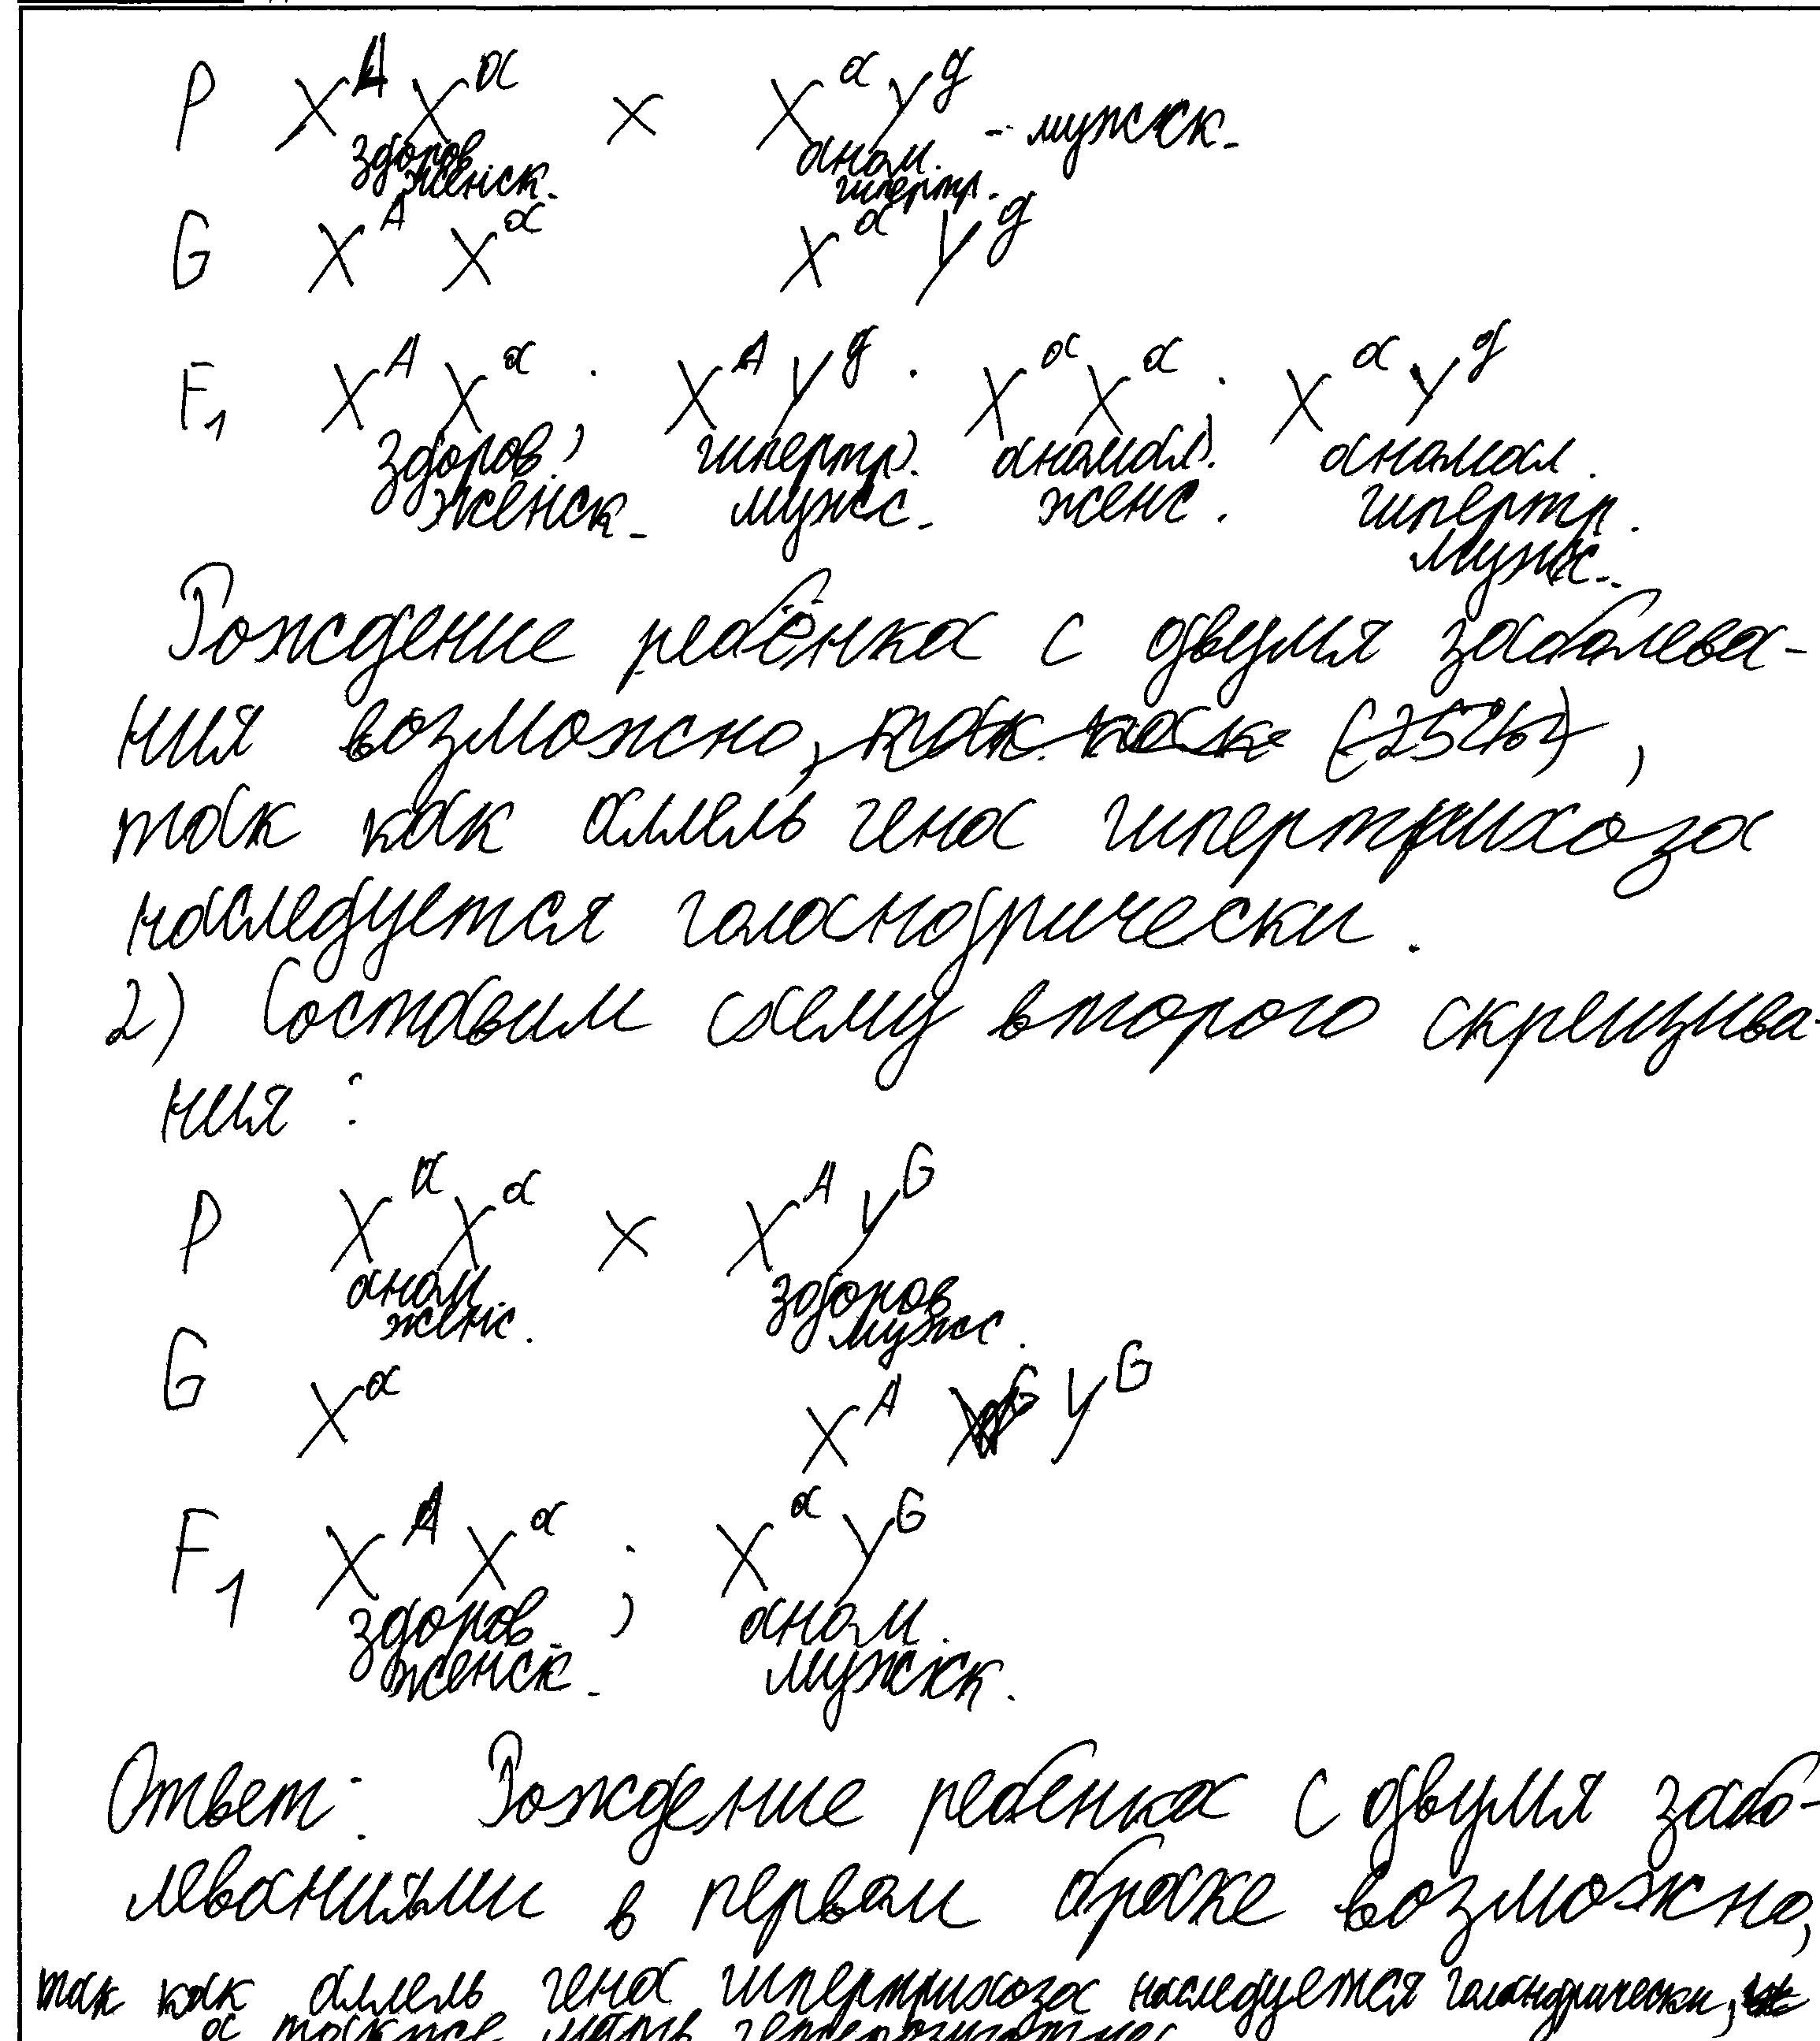 P X^A X^a × X^a Y^g - мужск.
здоров. аном.
женск. гипертр.
G X^A X^a X^a Y^g
F1 X^A X^a ; X^A Y^g ; X^a X^a ; X^a Y^g
здоров. гипертр. аномал. аномал.
женск. мужс. женс. гипертр.
мужс.
Рождение ребёнка с двумя заболева-
ния возможно, так как (25%),
так как аллель гена гипертрихоза
наследуется голандрически.
2) Составим схему второго скрещива-
ния:
P X^a X^a × X^A Y^G
аном. здоров.
женс. мужс.
G X^a X^A Y^G
F1 X^A X^a ; X^a Y^G
здоров. аном.
женск. мужск.
Ответ: Рождение ребенка с двумя забо-
леваниями в первом браке возможно,
так как аллель гена гипертрихоза наследуется голандрически,
а также мать гетерозиготна